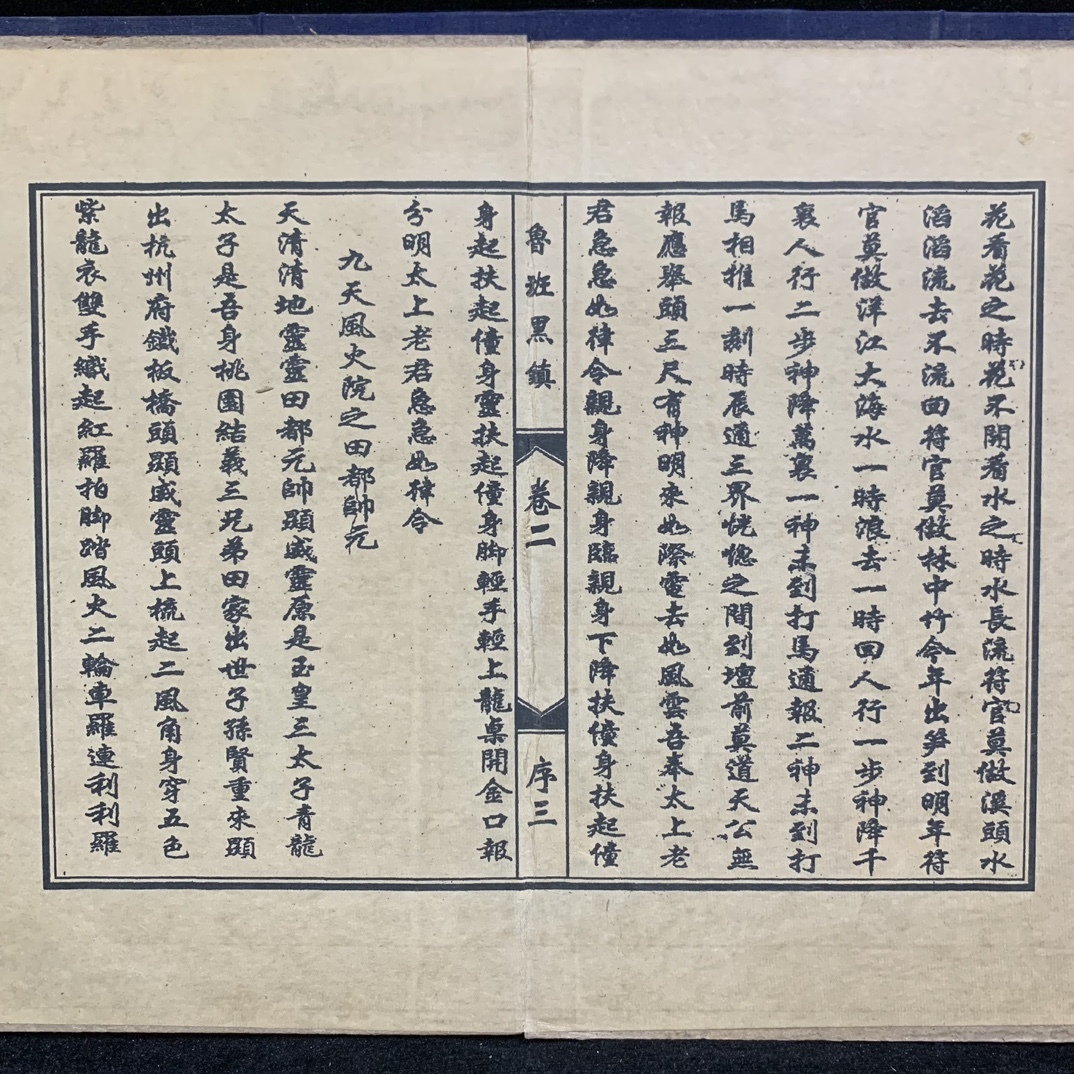 花看花之時花不開看水之時水長流符官莫做溪頭水
滔滔流去不流回符官莫做林中竹今年出笋到明年符
官莫做洋江大海水一時浪去一時回人行一步神降千
裏人行二步神降萬裏一神未到打馬通報二神未到打
馬相推一刻時辰通三界恍惚之間到壇前莫道天公無
報應舉頭三尺有神明來如際電去如風雲吾奉太上老
君急急如律令親身降親身臨親身下降扶僮身扶起僮
魯班黑鎮
卷二
序三
身起扶起僮身靈扶起僮身脚輕手輕上龍桌開金口報
分明太上老君急急如律令
九天風火院之田都帥元
天清清地靈靈田都元帥顯威靈原是玉皇三太子青龍
太子是吾身桃園結義三兄弟田家出世子孫賢重來顯
出杭州府鐵板橋頭顯威靈頭上梳起二風角身穿五色
紫龍衣雙手織起紅羅拍脚踏風火二輪車羅連利利羅